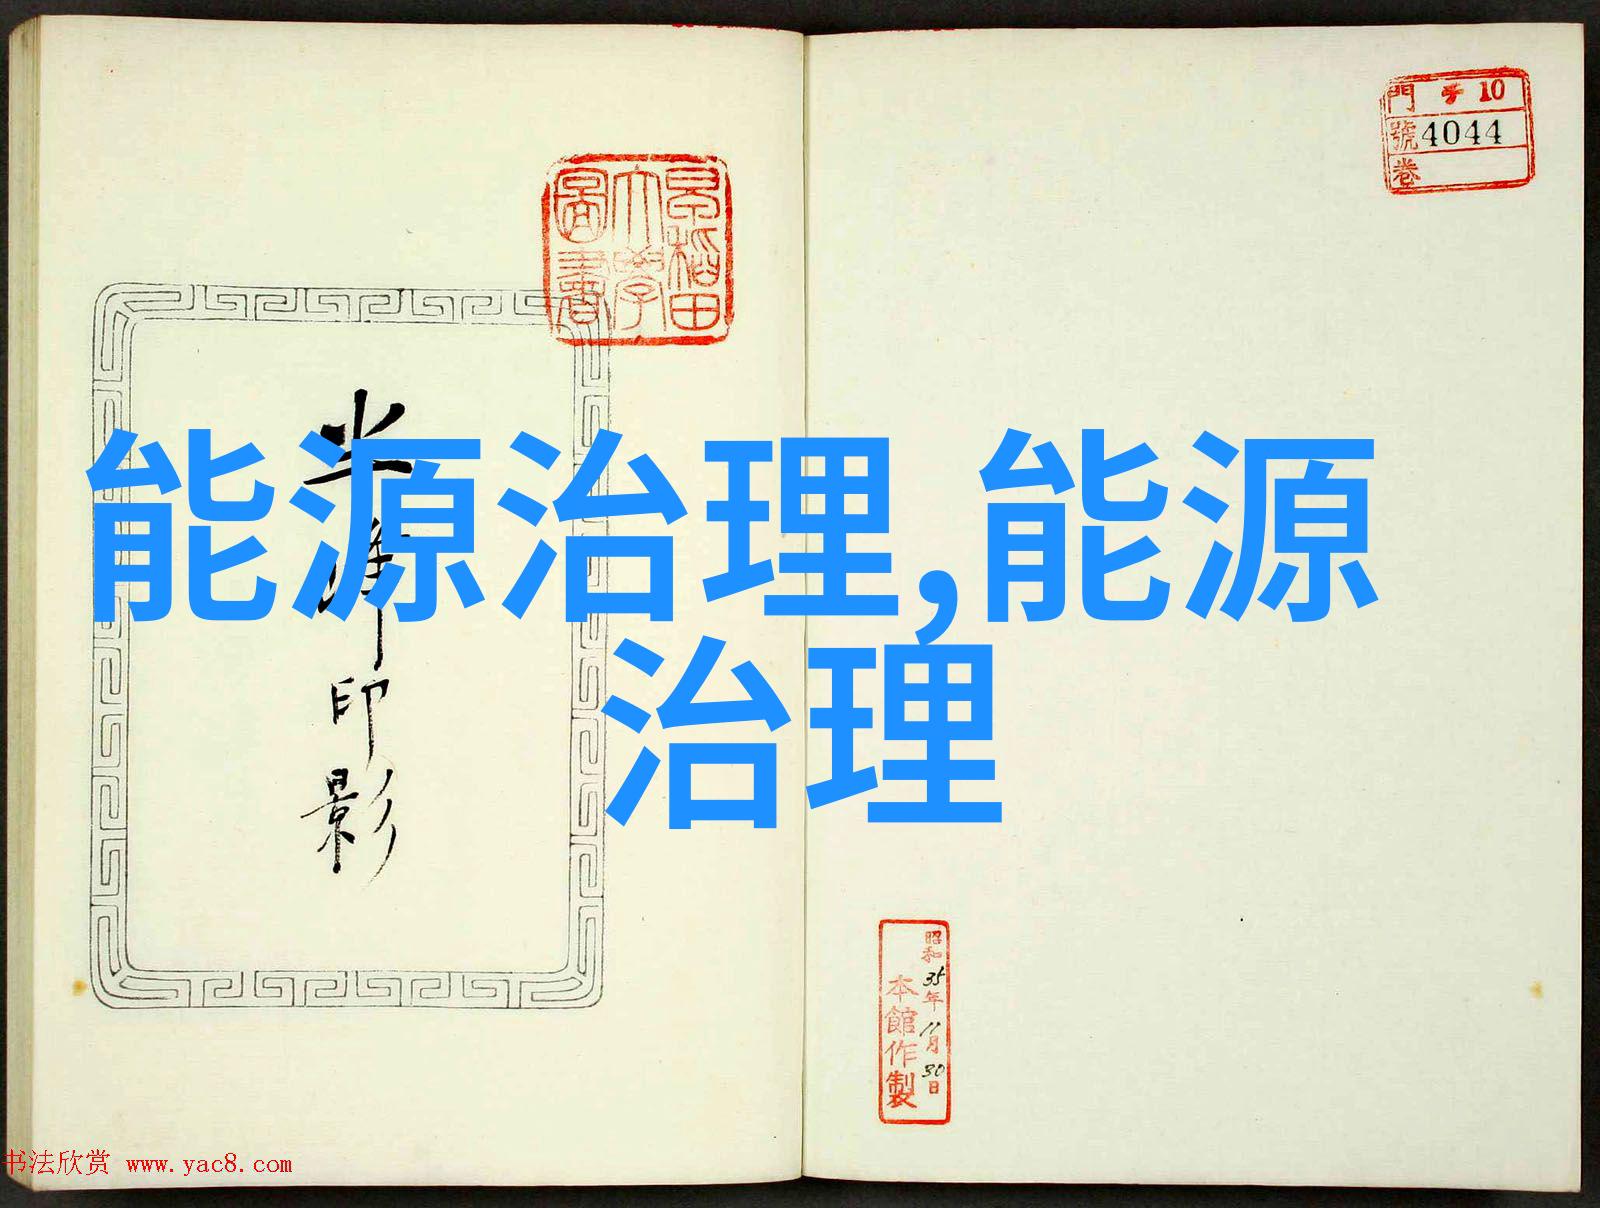 門 チ 10
號 4044
卷
早稲田
大學
圖書
能源治理,能源
治理
印影
昭和35年11月30日
本館作製
书法欣赏 www.yac8.com